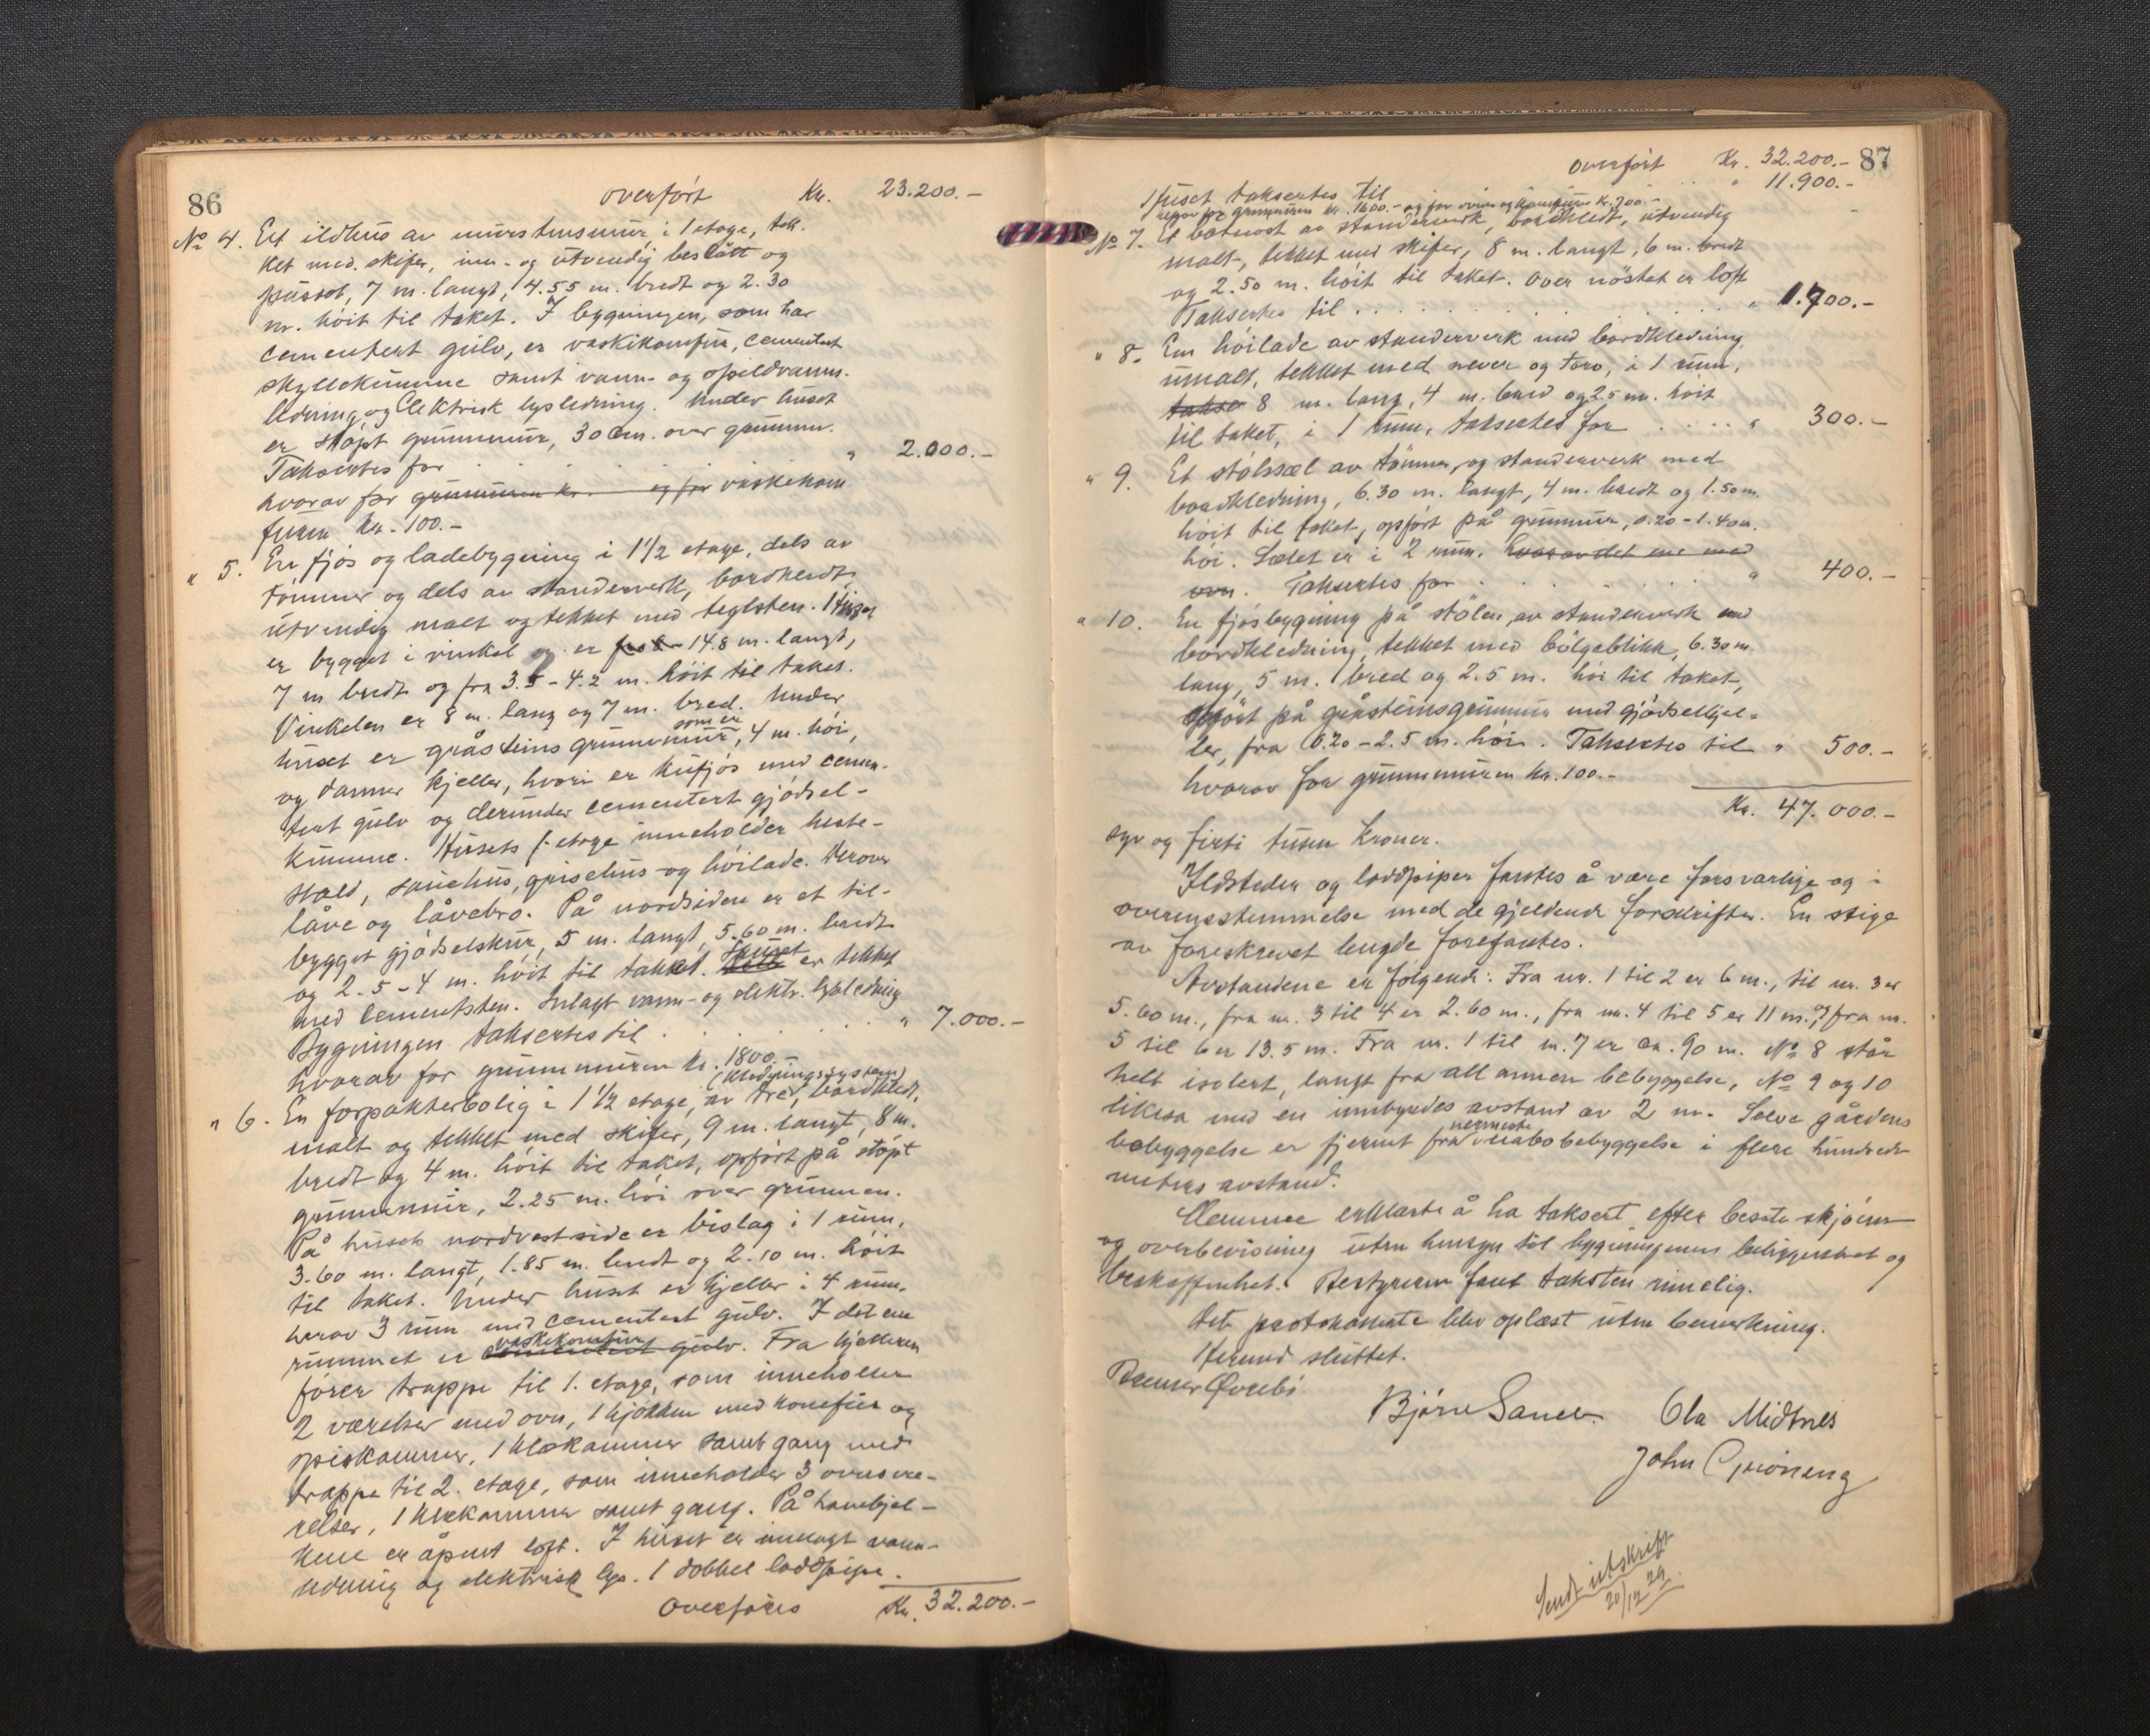 86
overført Kr. 23.200.-
No 4. Ett ildhus av murstensmur i 1 etage, tek-
ket med skifer, inn- og utvendig beslått og
pusset, 7 m. langt, 4.55 m. bredt og 2.30
m. høit til taket. I bygningen, som har
cementert gulv, er vaskikomfur, cementert
skyllekumme samt vann- og spildvanns-
ledning, og elektrisk lysledning. Under huset
er støpt grunnmur, 30 cm. over grunnen.
Takseres for . . . " 2.000.-
hvorav for grunnmuren kr. og for vaskekom
furen kr. 100.-
" 5. En fjøs og ladebygning i 1 1/2 etage, dels av
tømmer og dels av standerverk, bordkledt,
utvendig malt og tekket med teglsten. Huset
er bygget i vinkel og er 14.8 m. langt,
7 m bredt og fra 3.5 - 4.2 m. høit til taket.
Vinkelen er 8 m. lang og 7 m. bred. Under
huset er gråsteins grunnmur, som er 4 m. høi,
og danner kjeller, hvori er kufjøs med cemen-
tert gulv og derunder cementert gjødsel-
kumme. Husets 1. etage inneholder heste-
stald, sauehus, grisehus og høilade. Derover
låve og låvebro. På nordsiden er et til-
bygget gjødselskur, 5 m. langt, 5.60 m. bredt
og 2.5 - 4 m. høit til taket. Skuret er tekket
med cementsten. Inlagt vann- og elektr. lysledning
Bygningen takseres til . . . " 7.000.-
hvorav for grunnmuren kr. 1800.-
" 6. En forpakterbolig i 1 1/2 etage, av tre, (kledningssystem) bordkledt,
malt og tekket med skifer, 9 m. langt, 8 m.
bredt og 4 m. høit til taket, opført på støpt
grunnmur, 2.25 m. høi over grunnen.
På husets nordvestside er bislag i 1 rum,
3.60 m. langt, 1.85 m. bredt og 2.10 m. høit
til taket. Under huset er kjeller i 4 rum,
hvorav 3 rum med cementert gulv. I det ene
rummet er vaskekomfur cementert gulv. Fra kjelleren
fører trappe til 1. etage, som inneholder
2 værelser med ovn, 1 kjøkken med komfur og
spiskammer, 1 klækammer samt gang med
trappe til 2. etage, som inneholder 3 ovnsvæ-
relser, 1 klækammer samt gang. På hanebjel-
kene er åpent loft. I huset er innlagt vann-
ledning og elektrisk lys. 1 dobbel loddpipe.
overføres Kr. 32.200.-
87
overført Kr. 32.200.-
Huset takseres til " 11.900.-
hvorav for grunnmuren kr. 1600.- og for ovner og komfurer kr. 700.-
No 7. Et båtnøst av standerverk, bordkledt, utvendig
malt, tekket med skifer, 8 m. langt, 6 m. bredt
og 2.50 m. høit til taket. Over nøstet er loft
Takseres til . . . " 1.700.-
" 8. En høilade av standerverk med bordkledning,
umalt, tekket med never og torv, i 1 rum,
takse 8 m. lang, 4 m. bred og 2.5 m. høit
til taket, i 1 rum, takseres for . . . " 300.-
" 9. Et stølssæl av tømmer, og standerverk med
bordkledning, 6.30 m. langt, 4 m. bredt og 1.50 m.
høit til taket, opført på grunnmur, 0.20 - 1.40 m.
høi. Sælet er i 2 rum. hvorav det ene med
ovn. Takseres for . . . " 400.-
" 10. En fjøsbygning på stølen, av standerverk med
bordkledning, tekket med bølgeblikk, 6.30 m.
lang, 5 m. bred og 2.5 m. høi til taket,
opført på gråsteinsgrunnmur med gjødselkjel-
ler, fra 0.20 - 2.5 m. høi. Takseres til " 500.-
hvorav for grunnmuren kr. 100.-
Kr. 47.000.-
syv og firti tusen kroner.
Ildsteder og loddpiper fantes å være forsvarlige og i
overensstemmelse med de gjeldende forskrifter. En stige
av foreskrevet lengde forefantes.
Avstandene er følgende: Fra nr. 1 til 2 er 6 m., til nr. 3 er
5.60 m., fra nr. 3 til 4 er 2.60 m., fra nr. 4 til 5 er 11 m., fra nr.
5 til 6 er 13.5 m. Fra nr. 1 til nr. 7 er ca. 90 m. No 8 står
helt isolert, langt fra all annen bebyggelse, No 9 og 10
likesa med en innbyrdes avstand av 2 m. Selve gårdens
bebyggelse er fjernet fra nermeste nabobebyggelse i flere hundrede
meters avstand.
Mennene erklærte å ha taksert efter beste skjønn
og overbevisning uten hensyn til bygningenes beliggenhet og
beskaffenhet. Bestyreren fant taksten rimelig.
Det protokollerte blev oplæst uten bemerkning.
Hermed sluttet.
Øvrebø
Bjørn Ola Midtnes
John Grøneng
Sendt utskrift
20/12 29.